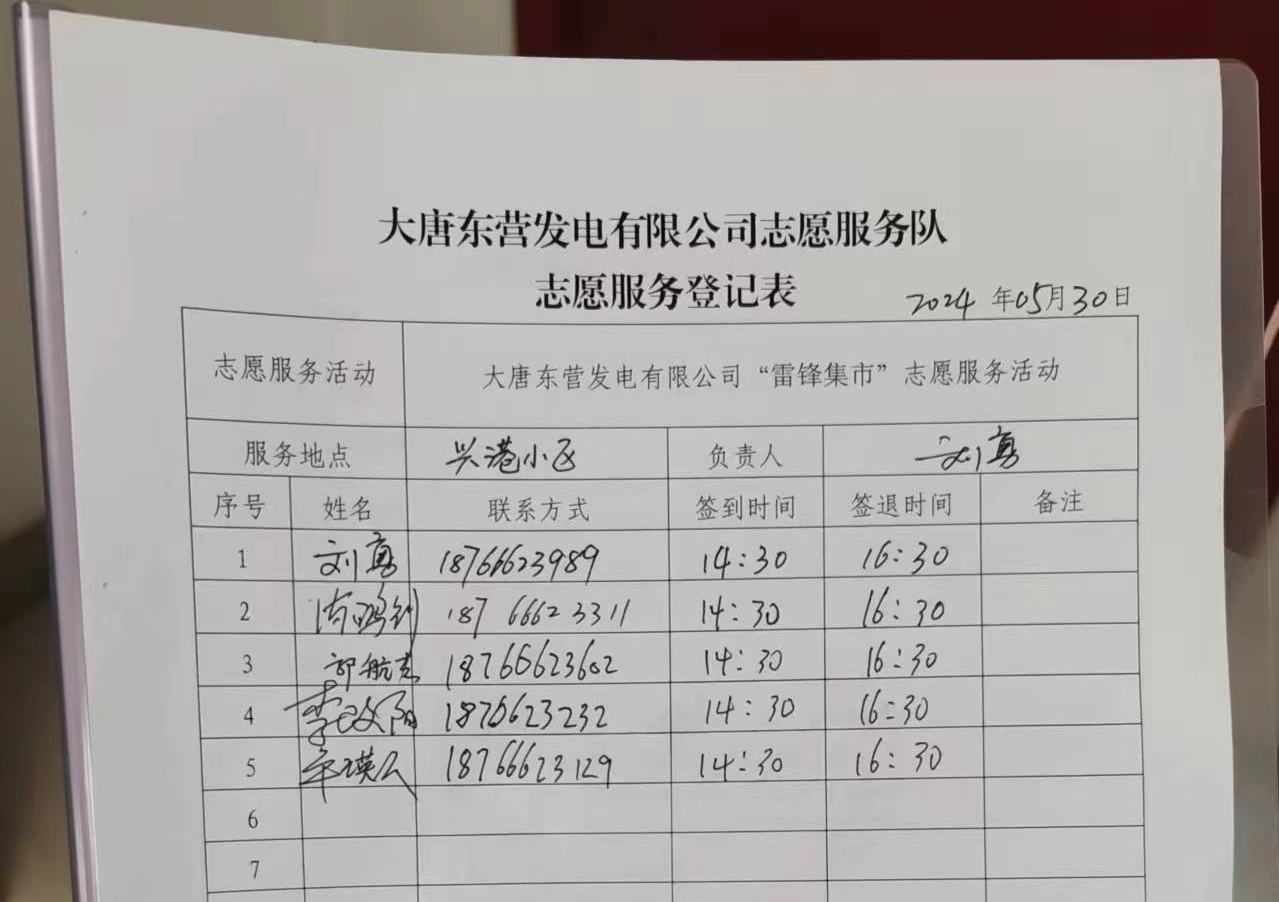 大唐东营发电有限公司志愿服务队
志愿服务登记表
2024 年05月30日
志愿服务活动 大唐东营发电有限公司“雷锋集市”志愿服务活动
服务地点 兴港小区 负责人 刘勇
序号 姓名 联系方式 签到时间 签退时间 备注
1 刘勇 18766623989 14:30 16:30
2 18766623311 14:30 16:30
3 郭航 18766623602 14:30 16:30
4 李政阳 1876623232 14:30 16:30
5 18766623129 14:30 16:30
6
7